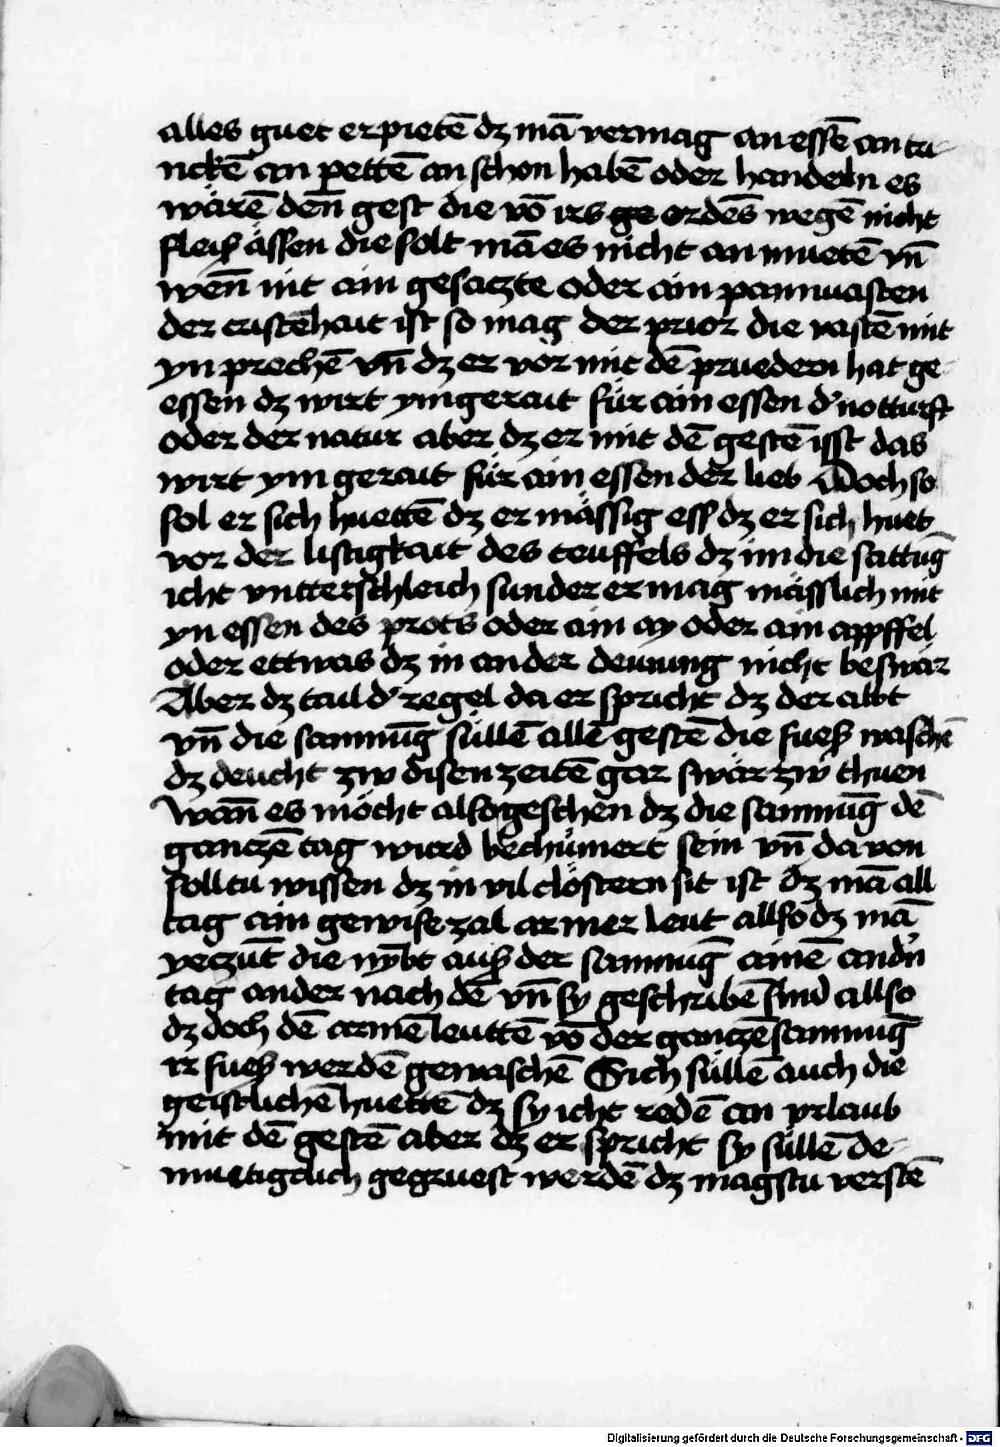 alles guet erpietē dz mā vermag an essē an tri-
nckē an pettē an schon habē oder handeln es
wärē deñ gest die võ irs ge ordēs wegē nicht
fleisch ässen die solt mā es nicht an muetē vñ
weñ nit ain gesaczte oder ain pannuasten
der cristēhait ist so mag der prior die vastē mit
yn prechē vñ dz er vor mit dē pruedern hat ge-
essen dz wirt ymgerait für ain essen d' notturft
oder der natur aber dz er mit dē gestē isst das
wirt ym gerait für ain essen der lieb Doch so
sol er sich huettē dz er mässig ess dz er sich huet
vor der listigkait des teuffels dz im die sattūg
icht vntterschleich sunder er mag mässlich mit
yn essen des prots oder ain ay oder ain appffel
oder ettwas dz in an der deuung nicht beswär
Aber dz tail d' regel da er spricht dz der abbt
vñ die samnūg süllē allē gestē die fuess waschē
dz deucht zw disen zeitē gar swär zw thuen
Wañ es möcht also geschehen dz die samnūg dē
ganczē tag wurd bechümert sein vñ da von
solltu wissen dz in vil clöstern sit ist dz mā all
tag ain gewise zal armer leut allso dz mā
yeczūt die nymbt auss der samnūg ainē andn
tag ander nach dē vñ sy geschribē sind allso
dz doch dē armē leuttē võ der ganczē samnūg
ir fuess werdē gewaschē Sich süllē auch die
geistlichē huettē dz sy icht redē an vrlaub
mit dē gestē aber dz er spricht sy süllē de-
muetigclich gegruest werdē dz magstu verstē
Digitalisierung gefördert durch die Deutsche Forschungsgemeinschaft - DFG